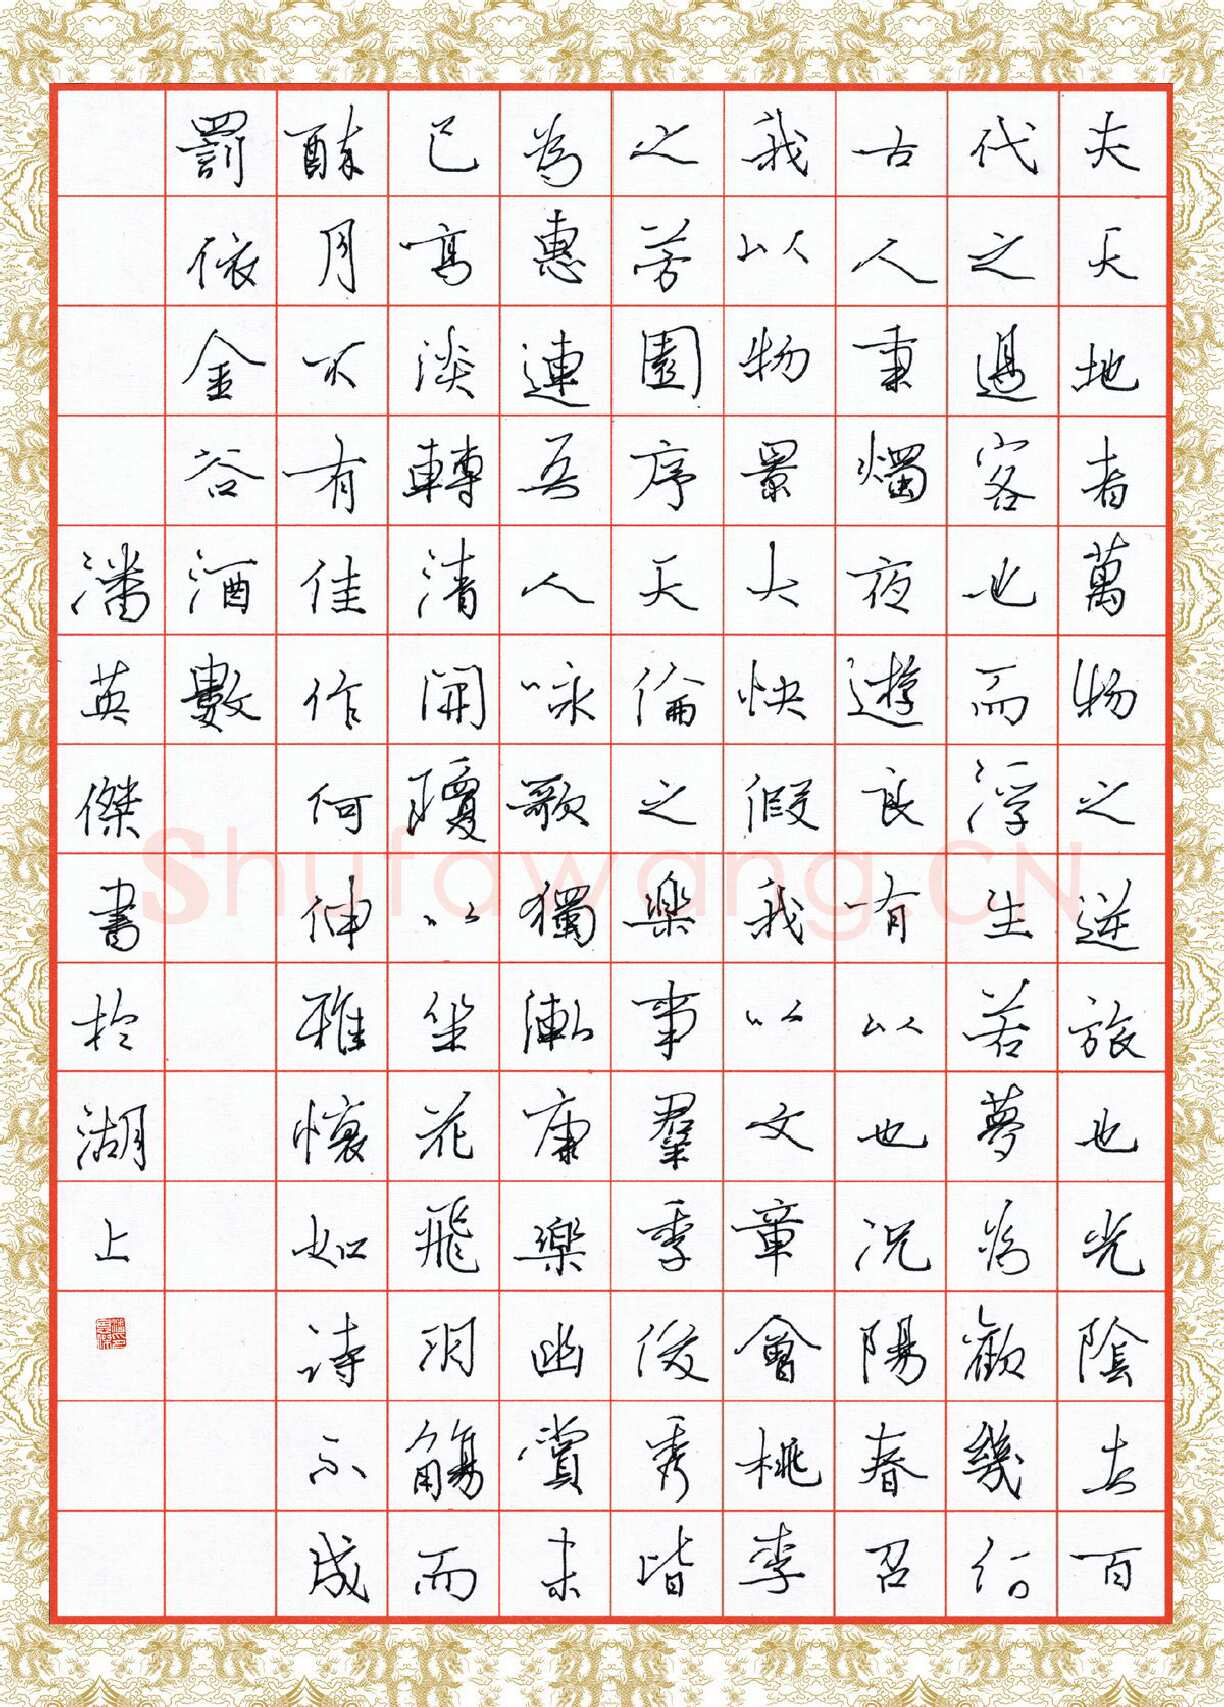 夫天地者萬物之逆旅也光陰者百
代之過客也而浮生若夢為歡幾何
古人秉燭夜遊良有以也況陽春召
我以物景大快假我以文章會桃李
之芳園序天倫之樂事羣季俊秀皆
為惠連吾人咏歌獨漸康樂幽賞未
已嗃淡轉清開瓊以坐花飛羽觴而
醉月不有佳作何伸雅懷如詩不成
罰依金谷酒數
潘英傑書於湖上
Shufawang.CN